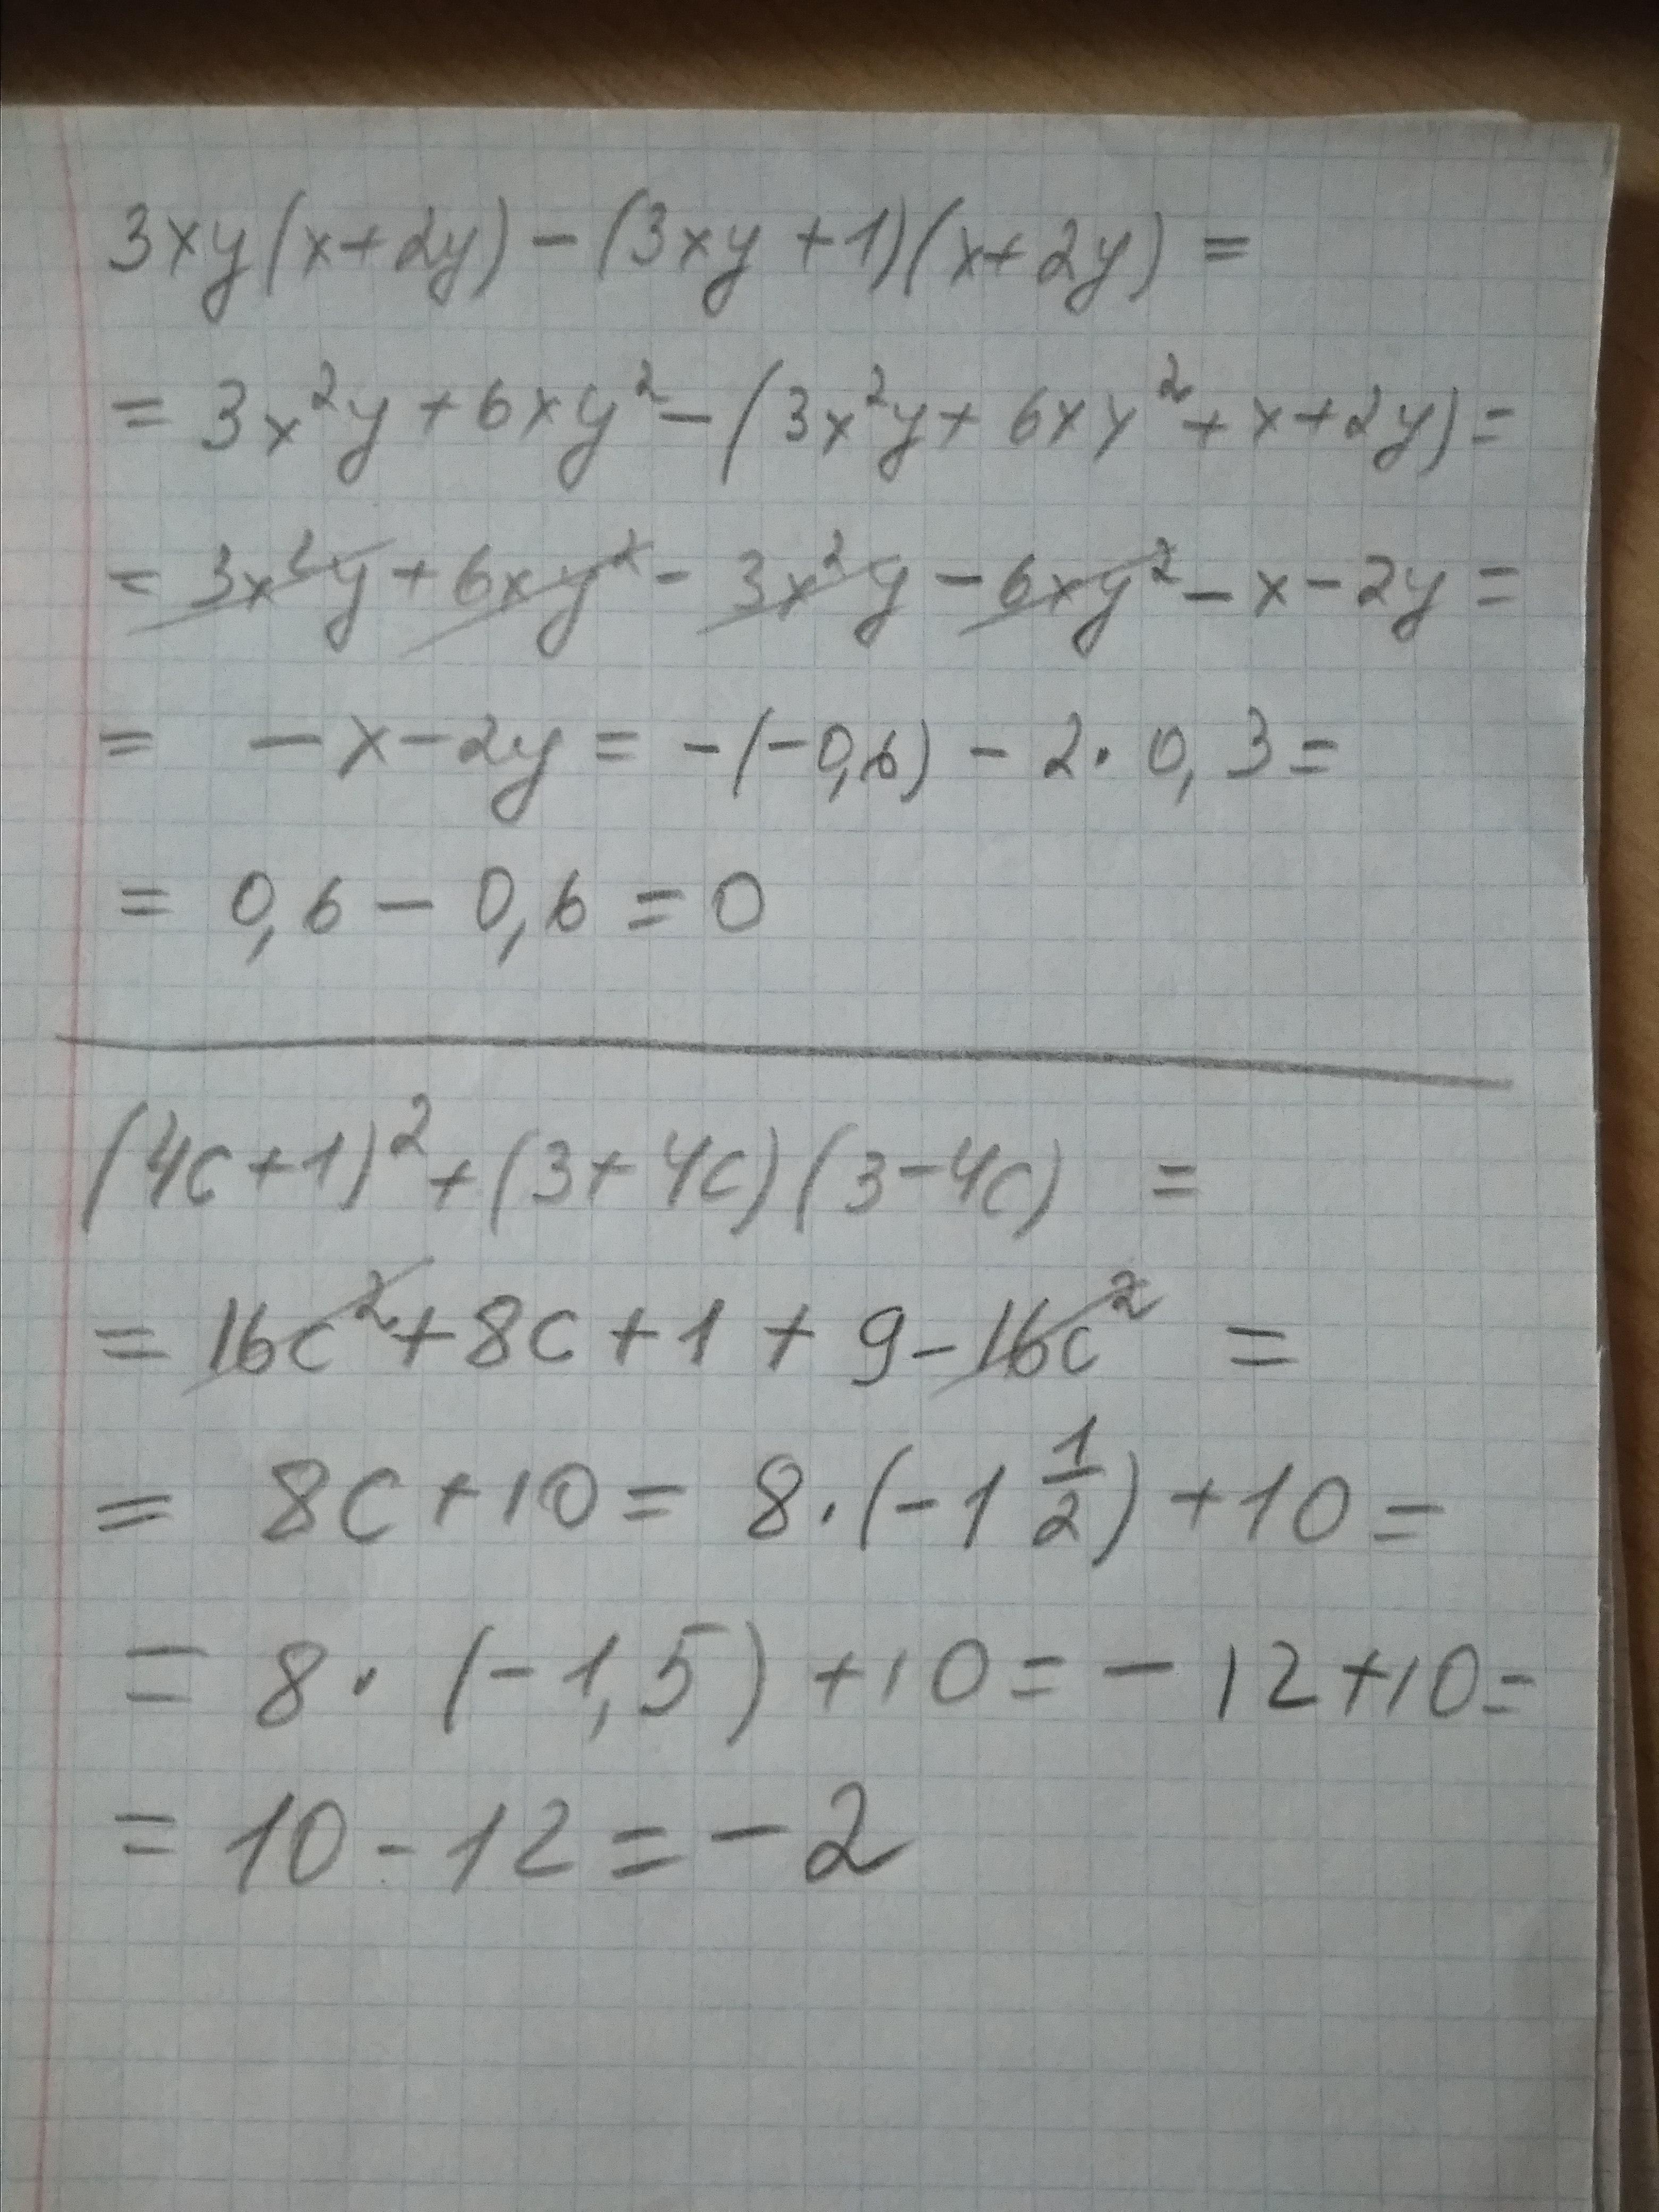 3xy(x+2y)-(3xy+1)(x+2y)=
=3x²y+6xy²-(3x²y+6xy²+x+2y)=
=3x²y+6xy²-3x²y-6xy²-x-2y=
= -x-2y=-(-0,6)-2·0,3=
=0,6-0,6=0
(4c+1)²+(3+4c)(3-4c) =
=16c²+8c+1+9-16c² =
= 8c+10=8·(-1 1/2)+10=
=8·(-1,5)+10=-12+10=
=10-12=-2